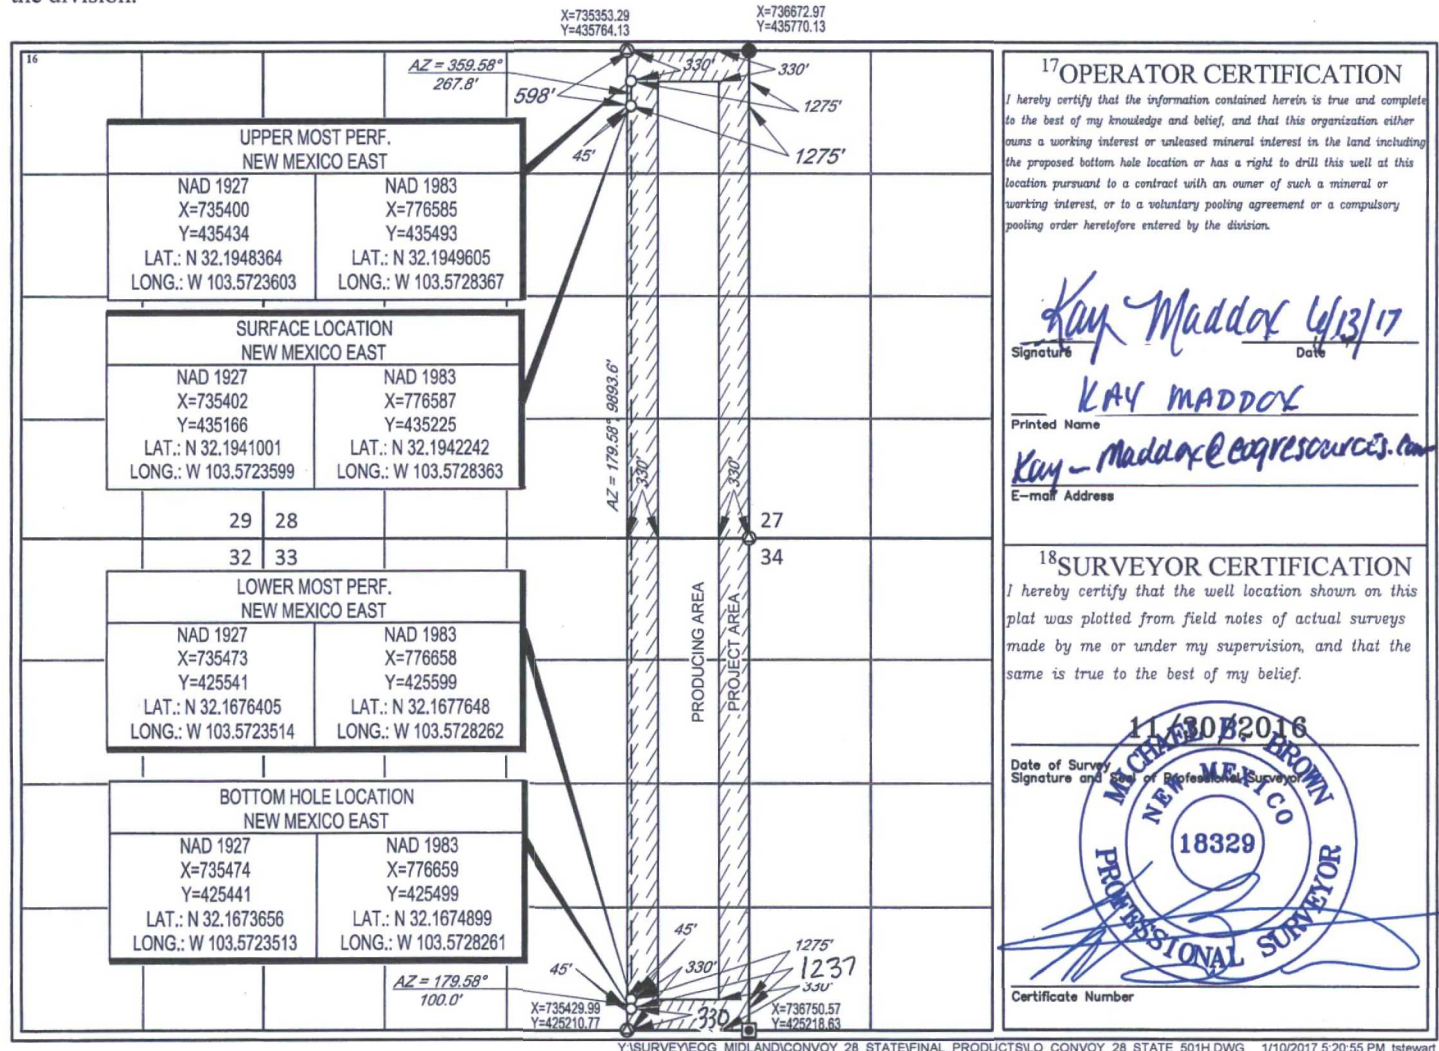 the division.
X=735353.29
Y=435764.13
X=736672.97
Y=435770.13
16
AZ = 359.58°
267.8'
598'
330'
330'
1275'
45'
1275'
UPPER MOST PERF.
NEW MEXICO EAST
NAD 1927 NAD 1983
X=735400 X=776585
Y=435434 Y=435493
LAT.: N 32.1948364 LAT.: N 32.1949605
LONG.: W 103.5723603 LONG.: W 103.5728367
SURFACE LOCATION
NEW MEXICO EAST
NAD 1927 NAD 1983
X=735402 X=776587
Y=435166 Y=435225
LAT.: N 32.1941001 LAT.: N 32.1942242
LONG.: W 103.5723599 LONG.: W 103.5728363
AZ = 179.58° 9893.6'
330'
330'
29 28 27
32 33 34
LOWER MOST PERF.
NEW MEXICO EAST
NAD 1927 NAD 1983
X=735473 X=776658
Y=425541 Y=425599
LAT.: N 32.1676405 LAT.: N 32.1677648
LONG.: W 103.5723514 LONG.: W 103.5728262
PRODUCING AREA
PROJECT AREA
BOTTOM HOLE LOCATION
NEW MEXICO EAST
NAD 1927 NAD 1983
X=735474 X=776659
Y=425441 Y=425499
LAT.: N 32.1673656 LAT.: N 32.1674899
LONG.: W 103.5723513 LONG.: W 103.5728261
45'
1275'
45'
330'
1237
330'
AZ = 179.58°
100.0'
X=735429.99
Y=425210.77
330
X=736750.57
Y=425218.63
17 OPERATOR CERTIFICATION
I hereby certify that the information contained herein is true and complete
to the best of my knowledge and belief, and that this organization either
owns a working interest or unleased mineral interest in the land including
the proposed bottom hole location or has a right to drill this well at this
location pursuant to a contract with an owner of such a mineral or
working interest, or to a voluntary pooling agreement or a compulsory
pooling order heretofore entered by the division.
Kay Maddox 6/13/17
Signature Date
KAY MADDOX
Printed Name
Kay_Maddox@eogresources.com
E-mail Address
18 SURVEYOR CERTIFICATION
I hereby certify that the well location shown on this
plat was plotted from field notes of actual surveys
made by me or under my supervision, and that the
same is true to the best of my belief.
11/30/2016
Date of Survey
Signature and Seal of Professional Surveyor
MICHAEL B. BROWN
NEW MEXICO
18329
PROFESSIONAL SURVEYOR
Certificate Number
Y:\SURVEY\EOG_MIDLAND\CONVOY_28_STATE\FINAL_PRODUCTS\LO_CONVOY_28_STATE_501H.DWG 1/10/2017 5:20:55 PM tstewart